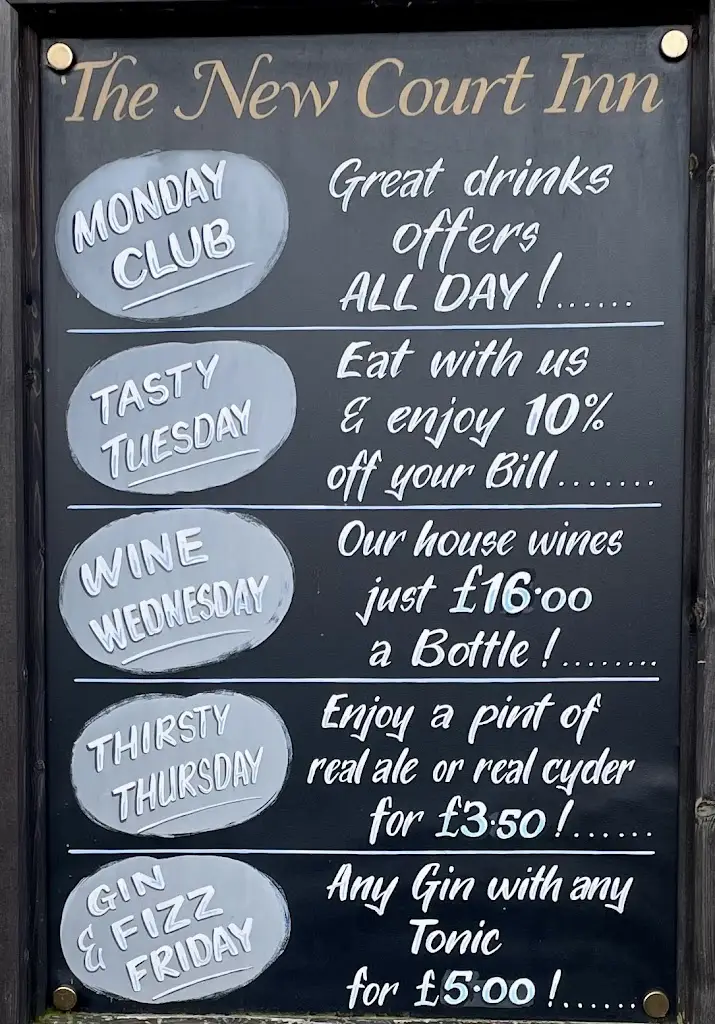 The New Court Inn
MONDAY
CLUB
Great drinks
offers
ALL DAY !......
TASTY
TUESDAY
Eat with us
& enjoy 10%
off your Bill.......
WINE
WEDNESDAY
Our house wines
just £16·00
a Bottle !........
THIRSTY
THURSDAY
Enjoy a pint of
real ale or real cyder
for £3·50 !......
GIN
& FIZZ
FRIDAY
Any Gin with any
Tonic
for £5·00 !......